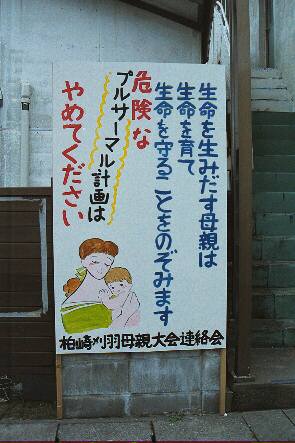 生命を生みだす母親は
生命を育て
生命を守ることをのぞみます
危険な
プルサーマル計画は
やめてください
柏崎刈羽母親大会連絡会